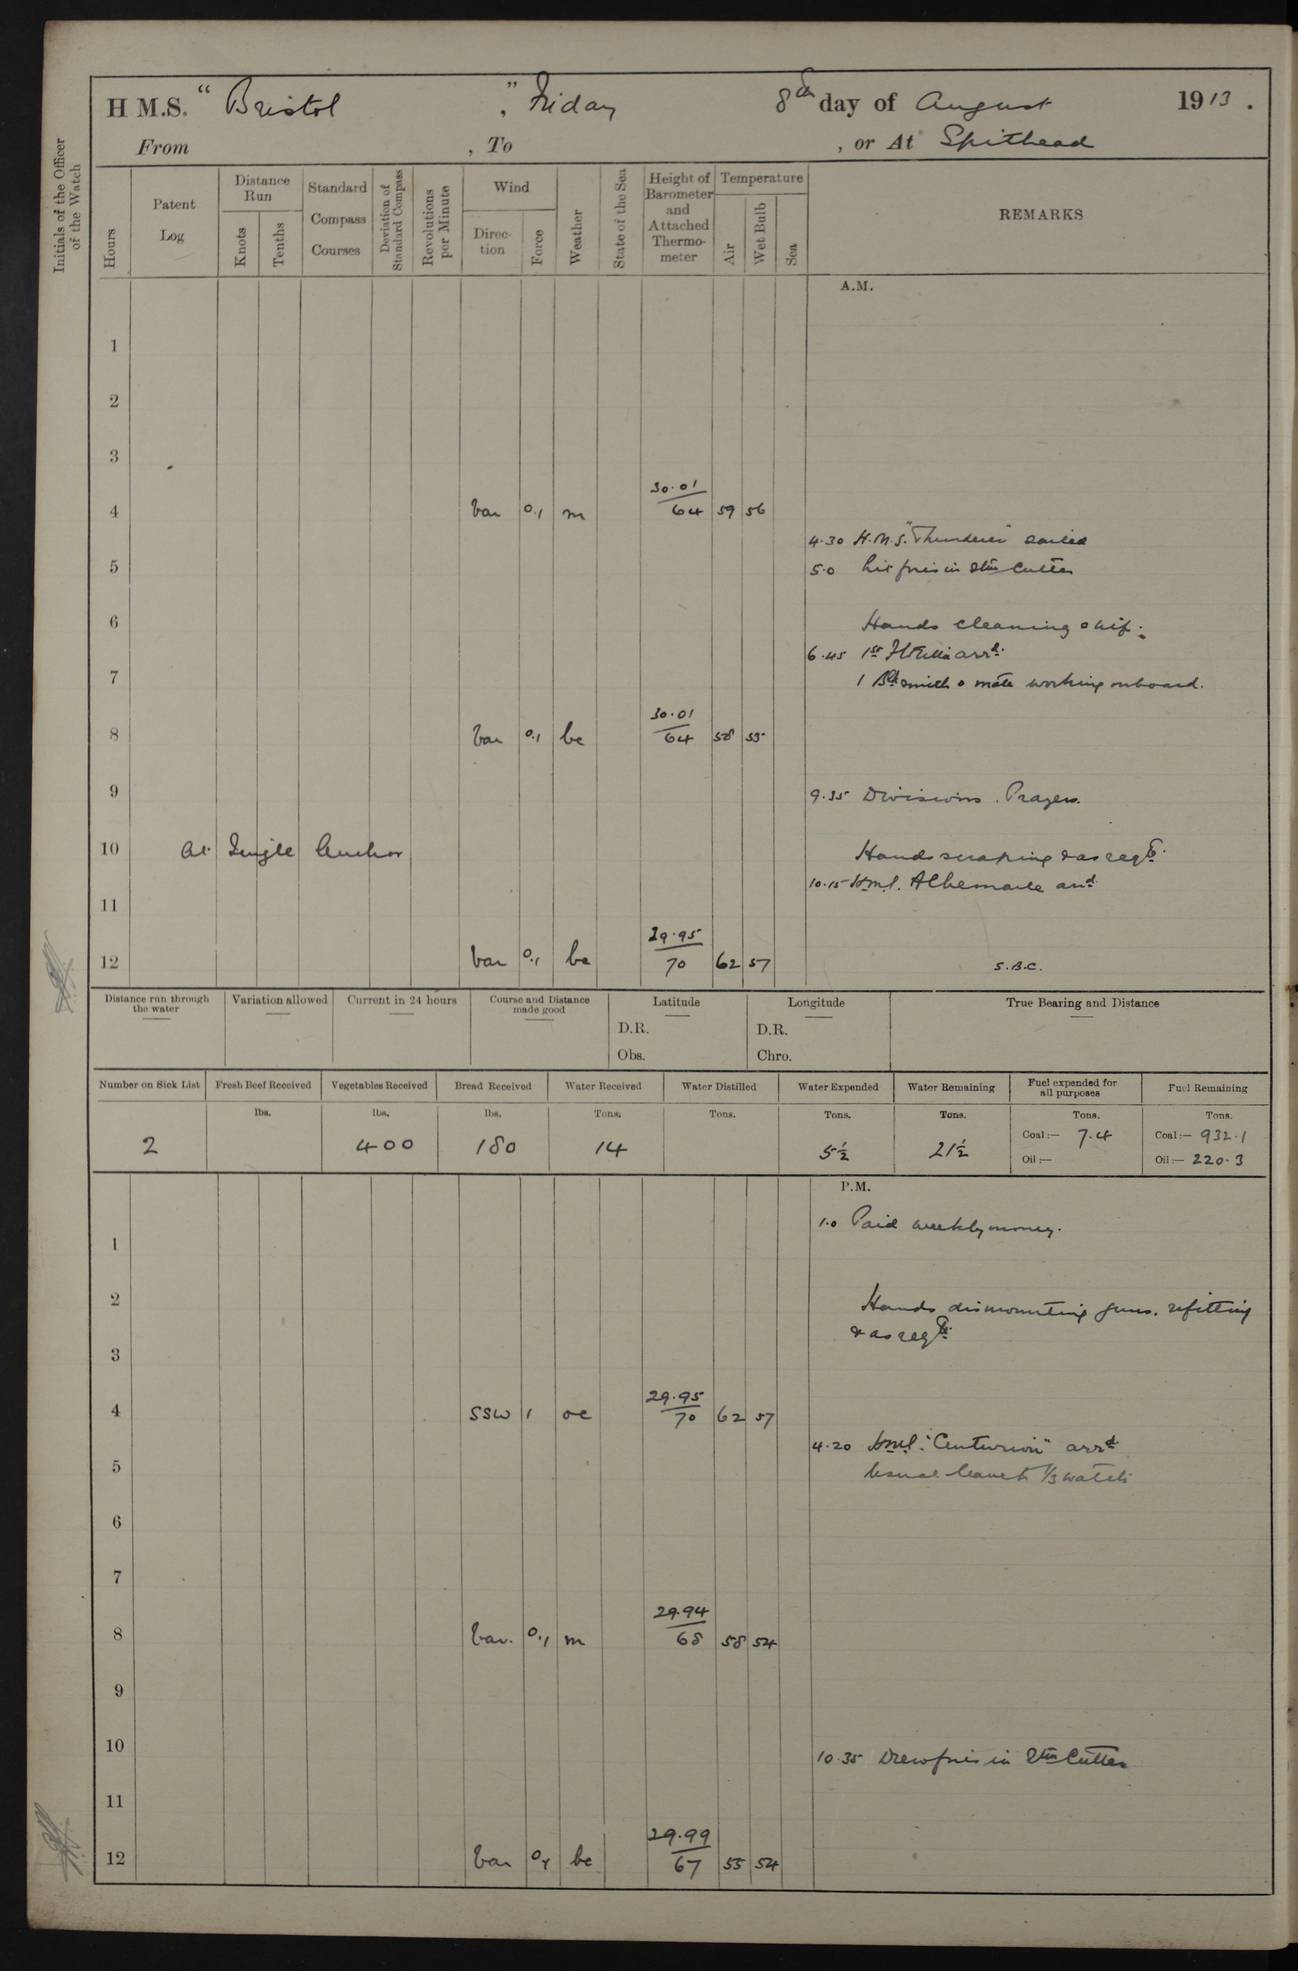 H M.S. “ Bristol ”, Friday 8th day of August 1913.
From , To , or At Spithead
Initials of the Officer of the Watch
Hours
Patent Log
Distance Run
Knots
Tenths
Standard Compass Courses
Deviation of Standard Compass
Revolutions per Minute
Wind
Direction
Force
Weather
State of the Sea
Height of Barometer and Attached Thermometer
Temperature
Air
Wet Bulb
Sea
REMARKS
A.M.
1
2
3
4 Var 0.1 m 30.01/64 59 56
4.30 H.M.S. "Thunderer" sailed
5
5.0 Lit fires in Stm Cutter
6 Hands cleaning ship.
6.45 1st arrd.
7 1 Blksmith & mate working onboard.
8 Var 0.1 bc 30.01/64 58 55
9
9.35 Divisions. Prayers.
10 At Single Anchor Hands scraping & as reqd.
10.15 H.M.S. Albemarle arrd.
11
12 Var 0.1 bc 29.95/70 62 57
S.B.C.
Distance run through the water
Variation allowed
Current in 24 hours
Course and Distance made good
Latitude
D.R.
Obs.
Longitude
D.R.
Chro.
True Bearing and Distance
Number on Sick List
Fresh Beef Received
Vegetables Received
Bread Received
Water Received
Water Distilled
Water Expended
Water Remaining
Fuel expended for all purposes
Fuel Remaining
lbs. lbs. lbs. Tons. Tons. Tons. Tons. Tons. Tons.
2 400 180 14 5½ 21½
Coal:— 7.4 Coal:— 932.1
Oil:— Oil:— 220.3
P.M.
1.0 Paid weekly money.
1
2 Hands dismounting guns, refitting
& as reqd.
3
4 SSW 1 oc 29.95/70 62 57
4.20 H.M.S. "Centurion" arrd
5 Usual leave to 1/3 watch
6
7
8 Var. 0.1 m 29.94/68 58 54
9
10
10.35 Drew fires in Stm Cutter
11
12 Var 0.1 bc 29.99/67 55 54